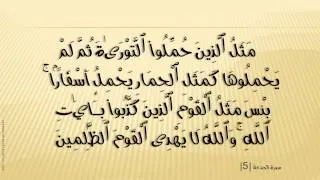 مَثَلُ ٱلَّذِينَ حُمِّلُوا۟ ٱلتَّوْرَىٰةَ ثُمَّ لَمْ
يَحْمِلُوهَا كَمَثَلِ ٱلْحِمَارِ يَحْمِلُ أَسْفَارًۢا ۚ
بِئْسَ مَثَلُ ٱلْقَوْمِ ٱلَّذِينَ كَذَّبُوا۟ بِـَٔايَـٰتِ
ٱللَّهِ ۚ وَٱللَّهُ لَا يَهْدِى ٱلْقَوْمَ ٱلظَّـٰلِمِينَ
سورة الجمعة |5|